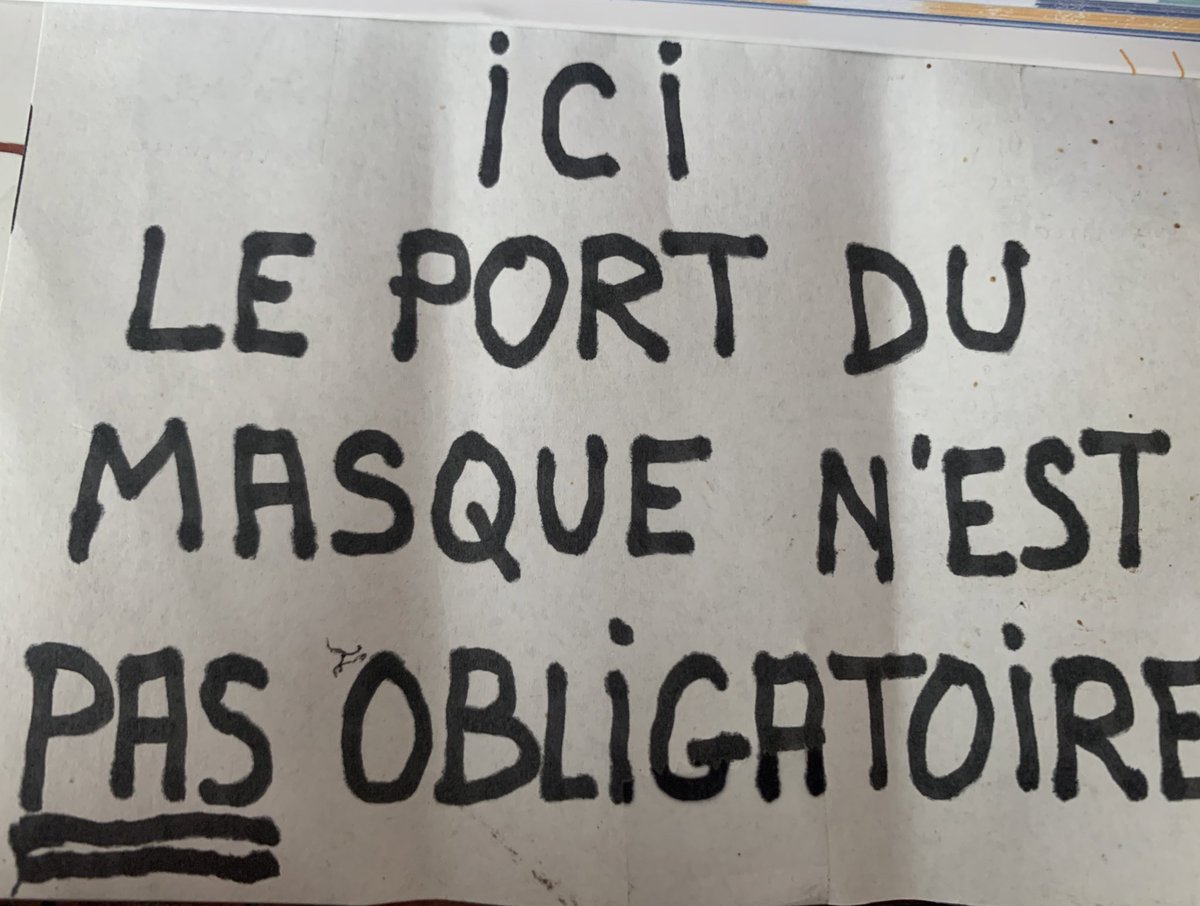 iCi
LE PORT DU
MASQUE N'EST
PAS OBLiGATOiRE